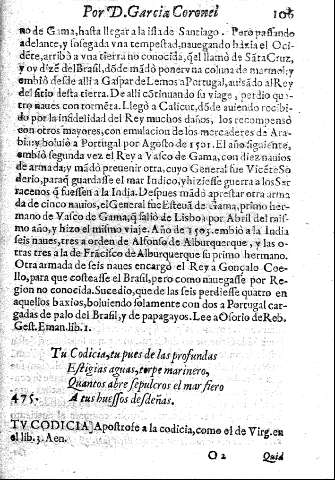 Por D. Garcia Coronel 106
no de Gama, hasta llegar a la isla de Santiago. Pero passando
adelante, y sosegada vna tempestad, nauegando hàzia el Oci-
dẽte, arribò a vna tierra no conocida, q̃ el llamó de Sãta Cruz,
y oy dizẽ del Brasil, dõde mãdó poner vna coluna de marmol, y
embiò desde alli a Gaspar de Lemos a Portugal, auisãdo al Rey
del sitio desta tierra. De alli cõtinuando su viage, perdio qua-
tro naues con tormẽta. Llegò a Calicut, dõde auiendo recibi-
do por la infidelidad del Rey muchos daños, los recompensò
con otros mayores, con emulacion de los mercaderes de Ara-
bia, y boluiò a Portugal por Agosto de 1501. El año siguiente,
embiò segunda vez el Rey a Vasco de Gama, con diez nauios
de armada, y mãdó preuenir otra, cuyo General fue Vicẽte So
derio, para q̃ guardasse el mar Indico, y hiziesse guerra a los Sar
racenos q̃ fuessen a la India. Despues mãdó aprestar otra arma
da de cinco nauios, el General fue Esteuã de Gama, primo her-
mano de Vasco de Gama, q̃ salió de Lisboa por Abril del mis-
mo año, y hizo el mismo viaje. Año de 1503. embiò a la India
seis naues, tres a orden de Alfonso de Alburquerque, y las o-
tras tres a la de Frãcisco de Alburquerque su primo hermano.
Otra armada de seis naues encargò el Rey a Gonçalo Coe-
llo, para que costeasse el Brasil, pero como nauegasse por Re-
gion no conocida. Sucedio, que de las seis perdiesse quatro en
aquellos baxios, boluiendo solamente con dos a Portugal car-
gadas de palo del Brasil, y de papagayos. Lee a Osorio de Reb.
Gest. Eman. lib. 1.
Tu Codicia, tu pues de las profundas
Estigias aguas, torpe marinero,
Quantos abre sepulcros el mar fiero
475. A tus huessos desdeñas.
TV CODICIA] Apostrofe a la codicia, como el de Virg. en
el lib. 3. Aen.
O 2 Quid